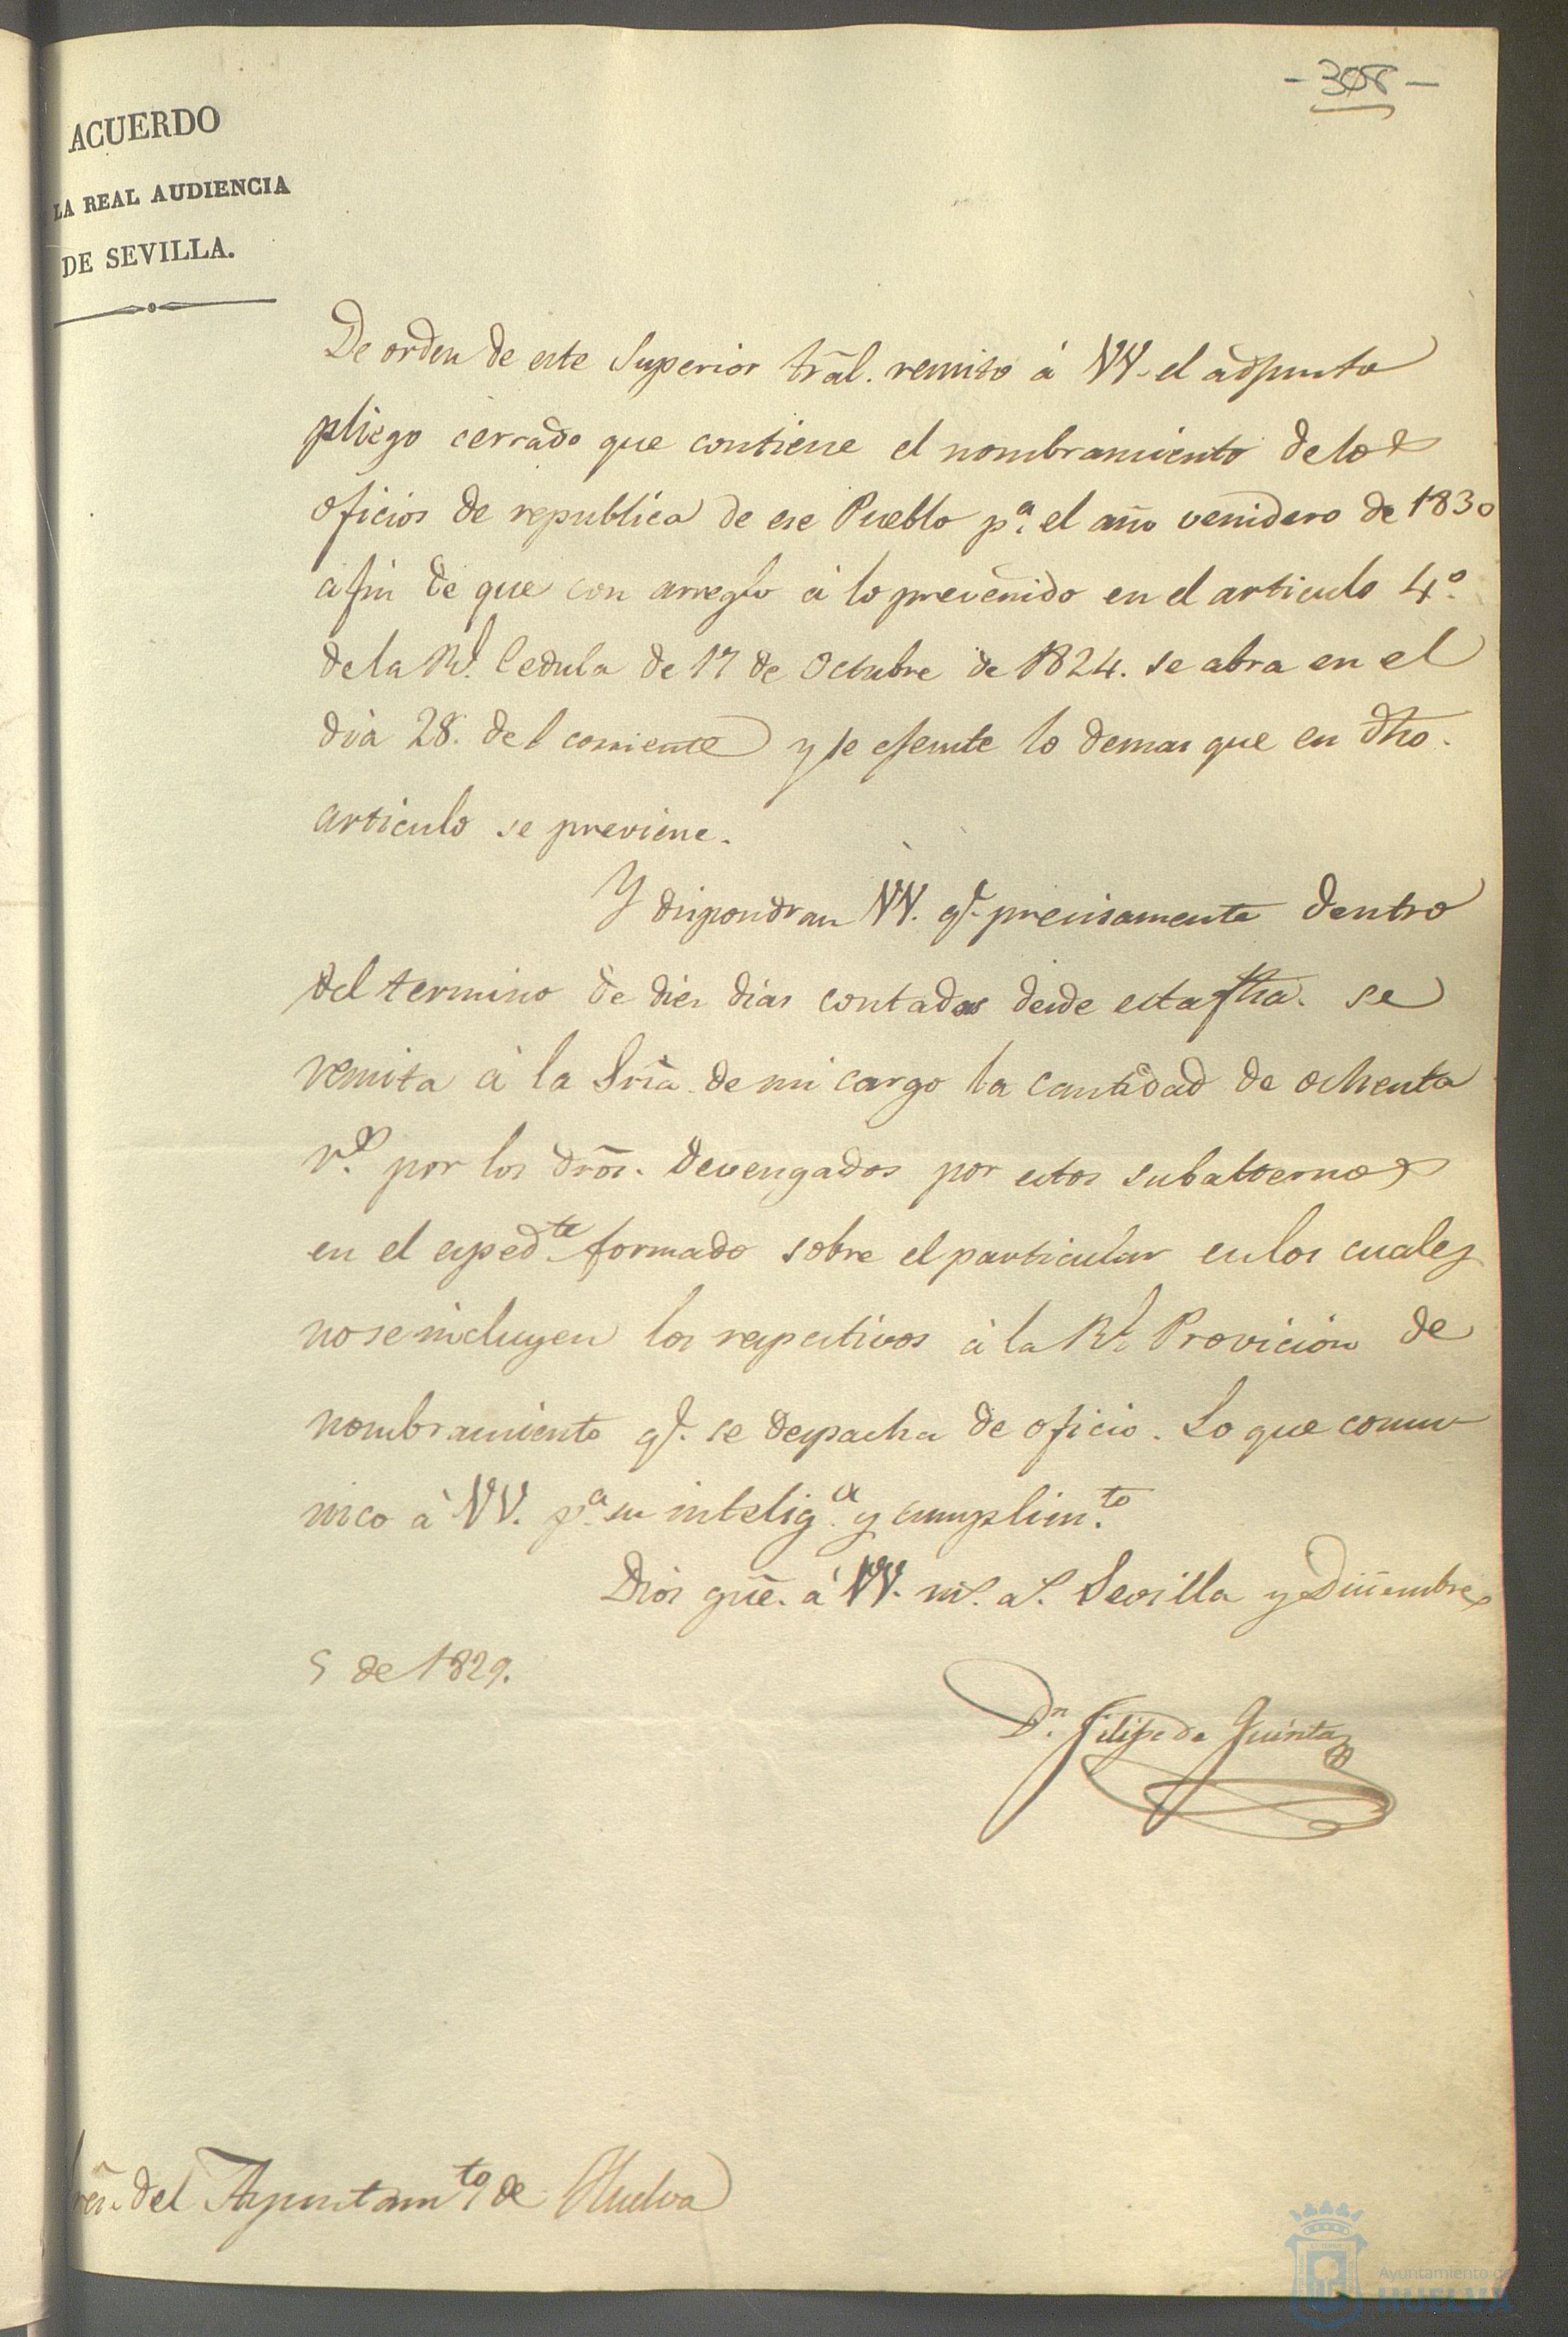 - 308 -
ACUERDO
LA REAL AUDIENCIA
DE SEVILLA.
De orden de este Superior trāl. remito á VV. el adjunto
pliego cerrado que contiene el nombramiento de los
oficios de republica de ese Pueblo pª. el año venidero de 1830
afin de que con arreglo á lo prevenido en el articulo 4º.
de la Rl. Cedula de 17 de Octubre de 1824. se abra en el
dia 28. del corriente y se efecute lo demas que en dho.
articulo se previene.
Y dispondran VV. qe. precisamente dentro
del termino de dies dias contados desde esta fha. se
remita á la Sria. de mi cargo la cantidad de ochenta
rs. por los drōs. devengados por estos subalternos
en el espedte. formado sobre el particular en los cuales
no se incluyen los respectivos á la Rl. Provicion de
nombramiento qe. se despacha de oficio. Lo que comu-
nico á VV. pª. su inteligª. y cumplimto.
Dios gūe. á VV. ms. as. Sevilla y Diciembre
5 de 1829.
Dn. Filipe de Quinta
res. del Ayuntamto. de Huelva
Ayuntamiento de
HUELVA